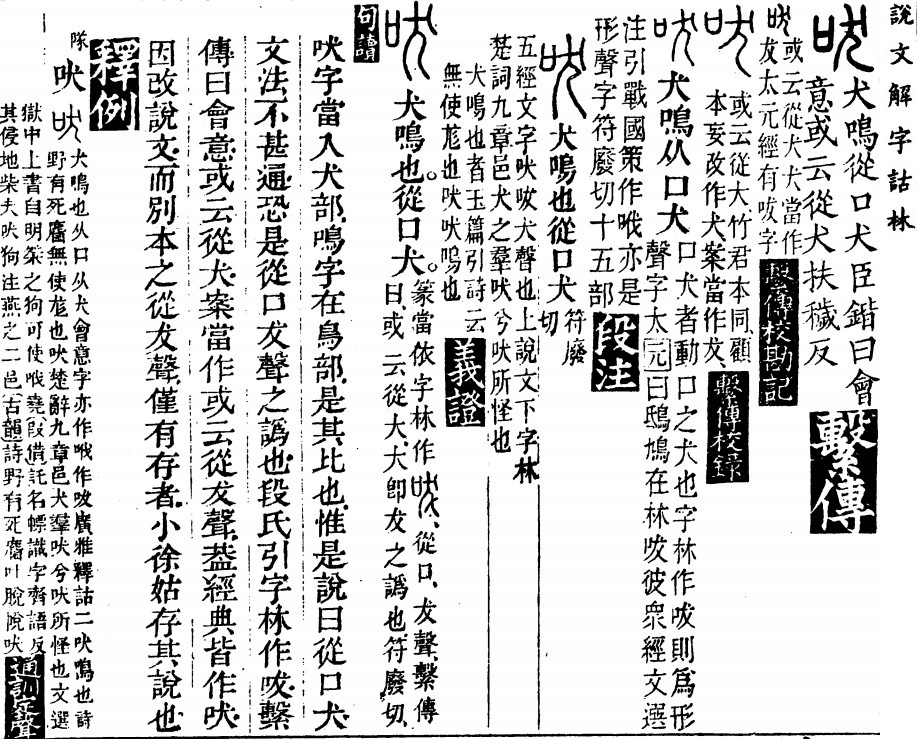 說文解字詁林
吠 犬鳴從口犬臣鍇曰會
意或云從犬扶穢反 繫傳
吠 或云從犬犬當作
犮太元經有㕹字 繫傳校勘記
吠 或云從大竹君本同顧
本妄改作犬案當作犮 繫傳校錄
吠 犬鳴从口犬 口犬者動口之犬也字林作㕹則爲形
聲字太元曰鴟鳩在林㕹彼衆經文選
注引戰國策作㕹亦是
形聲字符廢切十五部 段注
吠 犬鳴也從口犬 符廢
切
五經文字吠㕹犬聲也上說文下字林
楚詞九章邑犬之羣吠兮吠所怪也
犬鳴也者玉篇引詩云
無使尨也吠吠鳴也 義證
吠 犬鳴也。從口犬。 篆當依字林作㕹、從口、犮聲、繫傳
曰或云從大、大卽犮之譌也符廢切、 句讀
吠字當入犬部、鳴字在鳥部、是其比也、惟是說曰從口犬、
文法不甚通、恐是從口犮聲之譌也、段氏引字林作㕹、繫
傳曰會意、或云從犬、案當作或云從犮聲、蓋經典皆作吠、
因改說文、而別本之從犮聲、僅有存者、小徐姑存其說也、
釋例
吠 犬鳴也从口从犬會意字亦作㕹作㕹廣雅釋詁二吠鳴也詩
野有死麕無使尨也吠楚辭九章邑犬羣吠兮吠所怪也文選
獄中上書自明桀之狗可使㕹堯叚借託名幖識字齊語反
其侵地柴夫吠狗注燕之二邑古韻詩野有死麕叶脫帨吠 通訓定聲
隊